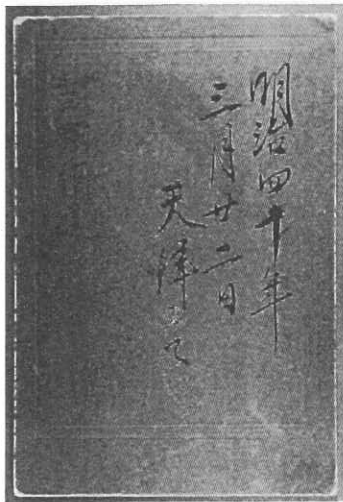 明治四十年
三月廿二日
天津ニて